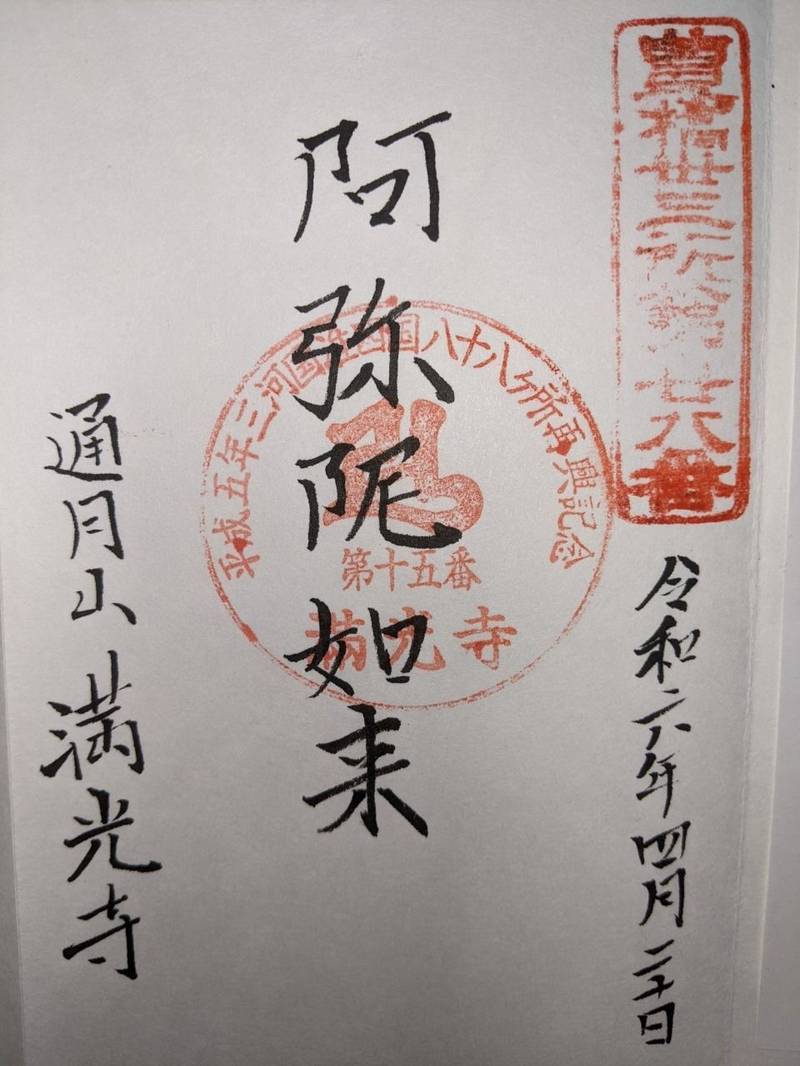 豊橋卅三所 廿八番
令和六年四月二十日
阿弥陀如来
平成五年三河国准四国八十八ヶ所再興記念
第十五番
満光寺
通月山満光寺